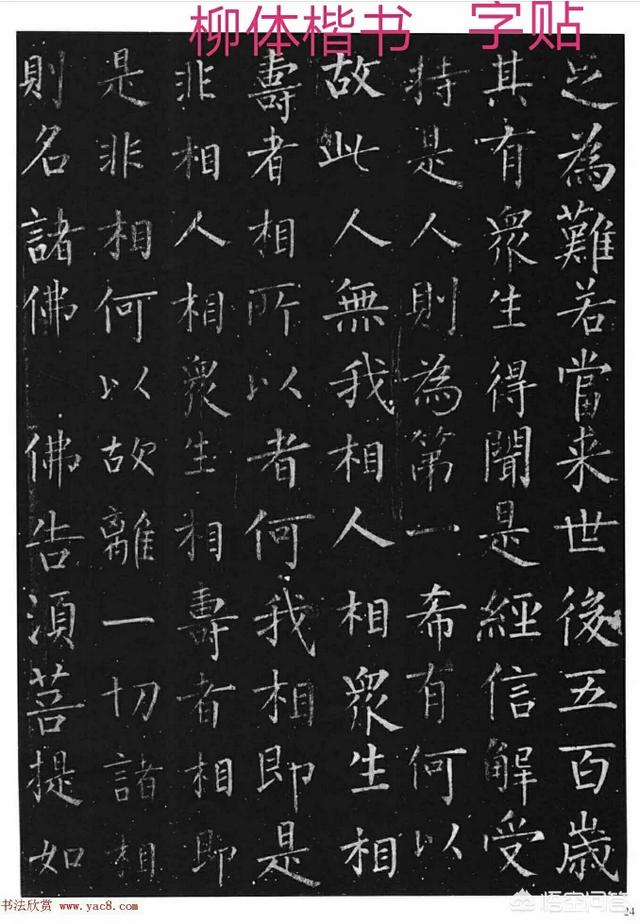 柳体楷书 字贴
之為難若當来世後五百歲
其有眾生得聞是經信解受
持是人則為第一希有何以
故此人無我相人相眾生相
壽者相所以者何我相即是
非相人相眾生相壽者相即
是非相何以故離一切諸相
則名諸佛 佛告須菩提如
书法欣赏 www.yac8.com
悟空问答
24